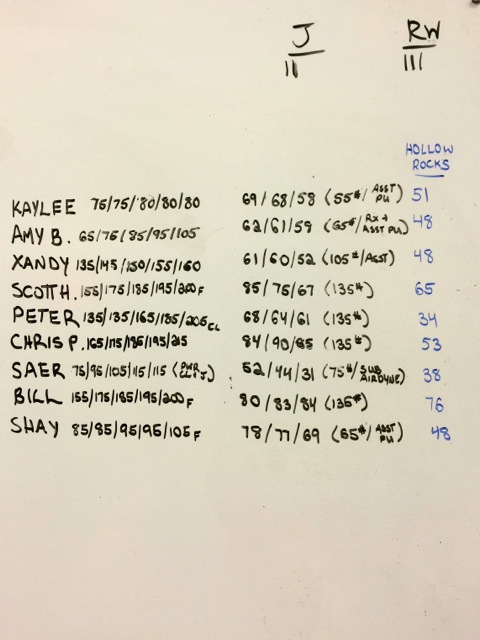 J RW
II III
HOLLOW
ROCKS
KAYLEE 75/75/80/80/80 69/68/58 (55#/ASST PU) 51
AMY B. 65/75/85/95/105 62/61/59 (65#/RX+ ASST PU) 48
XANDY 135/145/150/155/160 61/60/52 (105#/ASST) 48
SCOTT H. 155/175/185/195/200F 85/75/67 (135#) 65
PETER 135/135/165/185/205CL 68/64/61 (135#) 34
CHRIS P. 165/115/185/195/215 84/90/85 (135#) 53
SAER 75/95/105/115/115 (PWR J) 52/44/31 (75#/SUB AIRDYNE) 38
BILL 155/175/185/195/200F 80/83/84 (135#) 76
SHAY 85/85/95/95/105F 78/77/69 (65#/ASST PU) 48